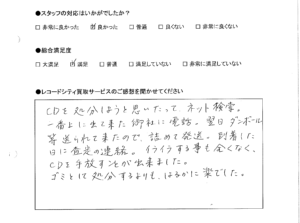 ●スタッフの対応はいかがでしたか？
□ 非常に良かった ☑ 良かった □ 普通 □ 良くない □ 非常に良くない
●総合満足度
□ 大満足 ☑ 満足 □ 普通 □ 満足していない □ 非常に満足していない
●レコードシティ買取サービスのご感想を聞かせてください
CDを処分しようと思いたって、ネット検索。
一番上に出て来た御社に電話。翌日ダンボール
等送られて来たので、詰めて発送。到着した
日に査定の連絡。イライラする事も全くなく、
CDを手放すことが出来ました。
ゴミとして処分するよりも、はるかに楽でした。